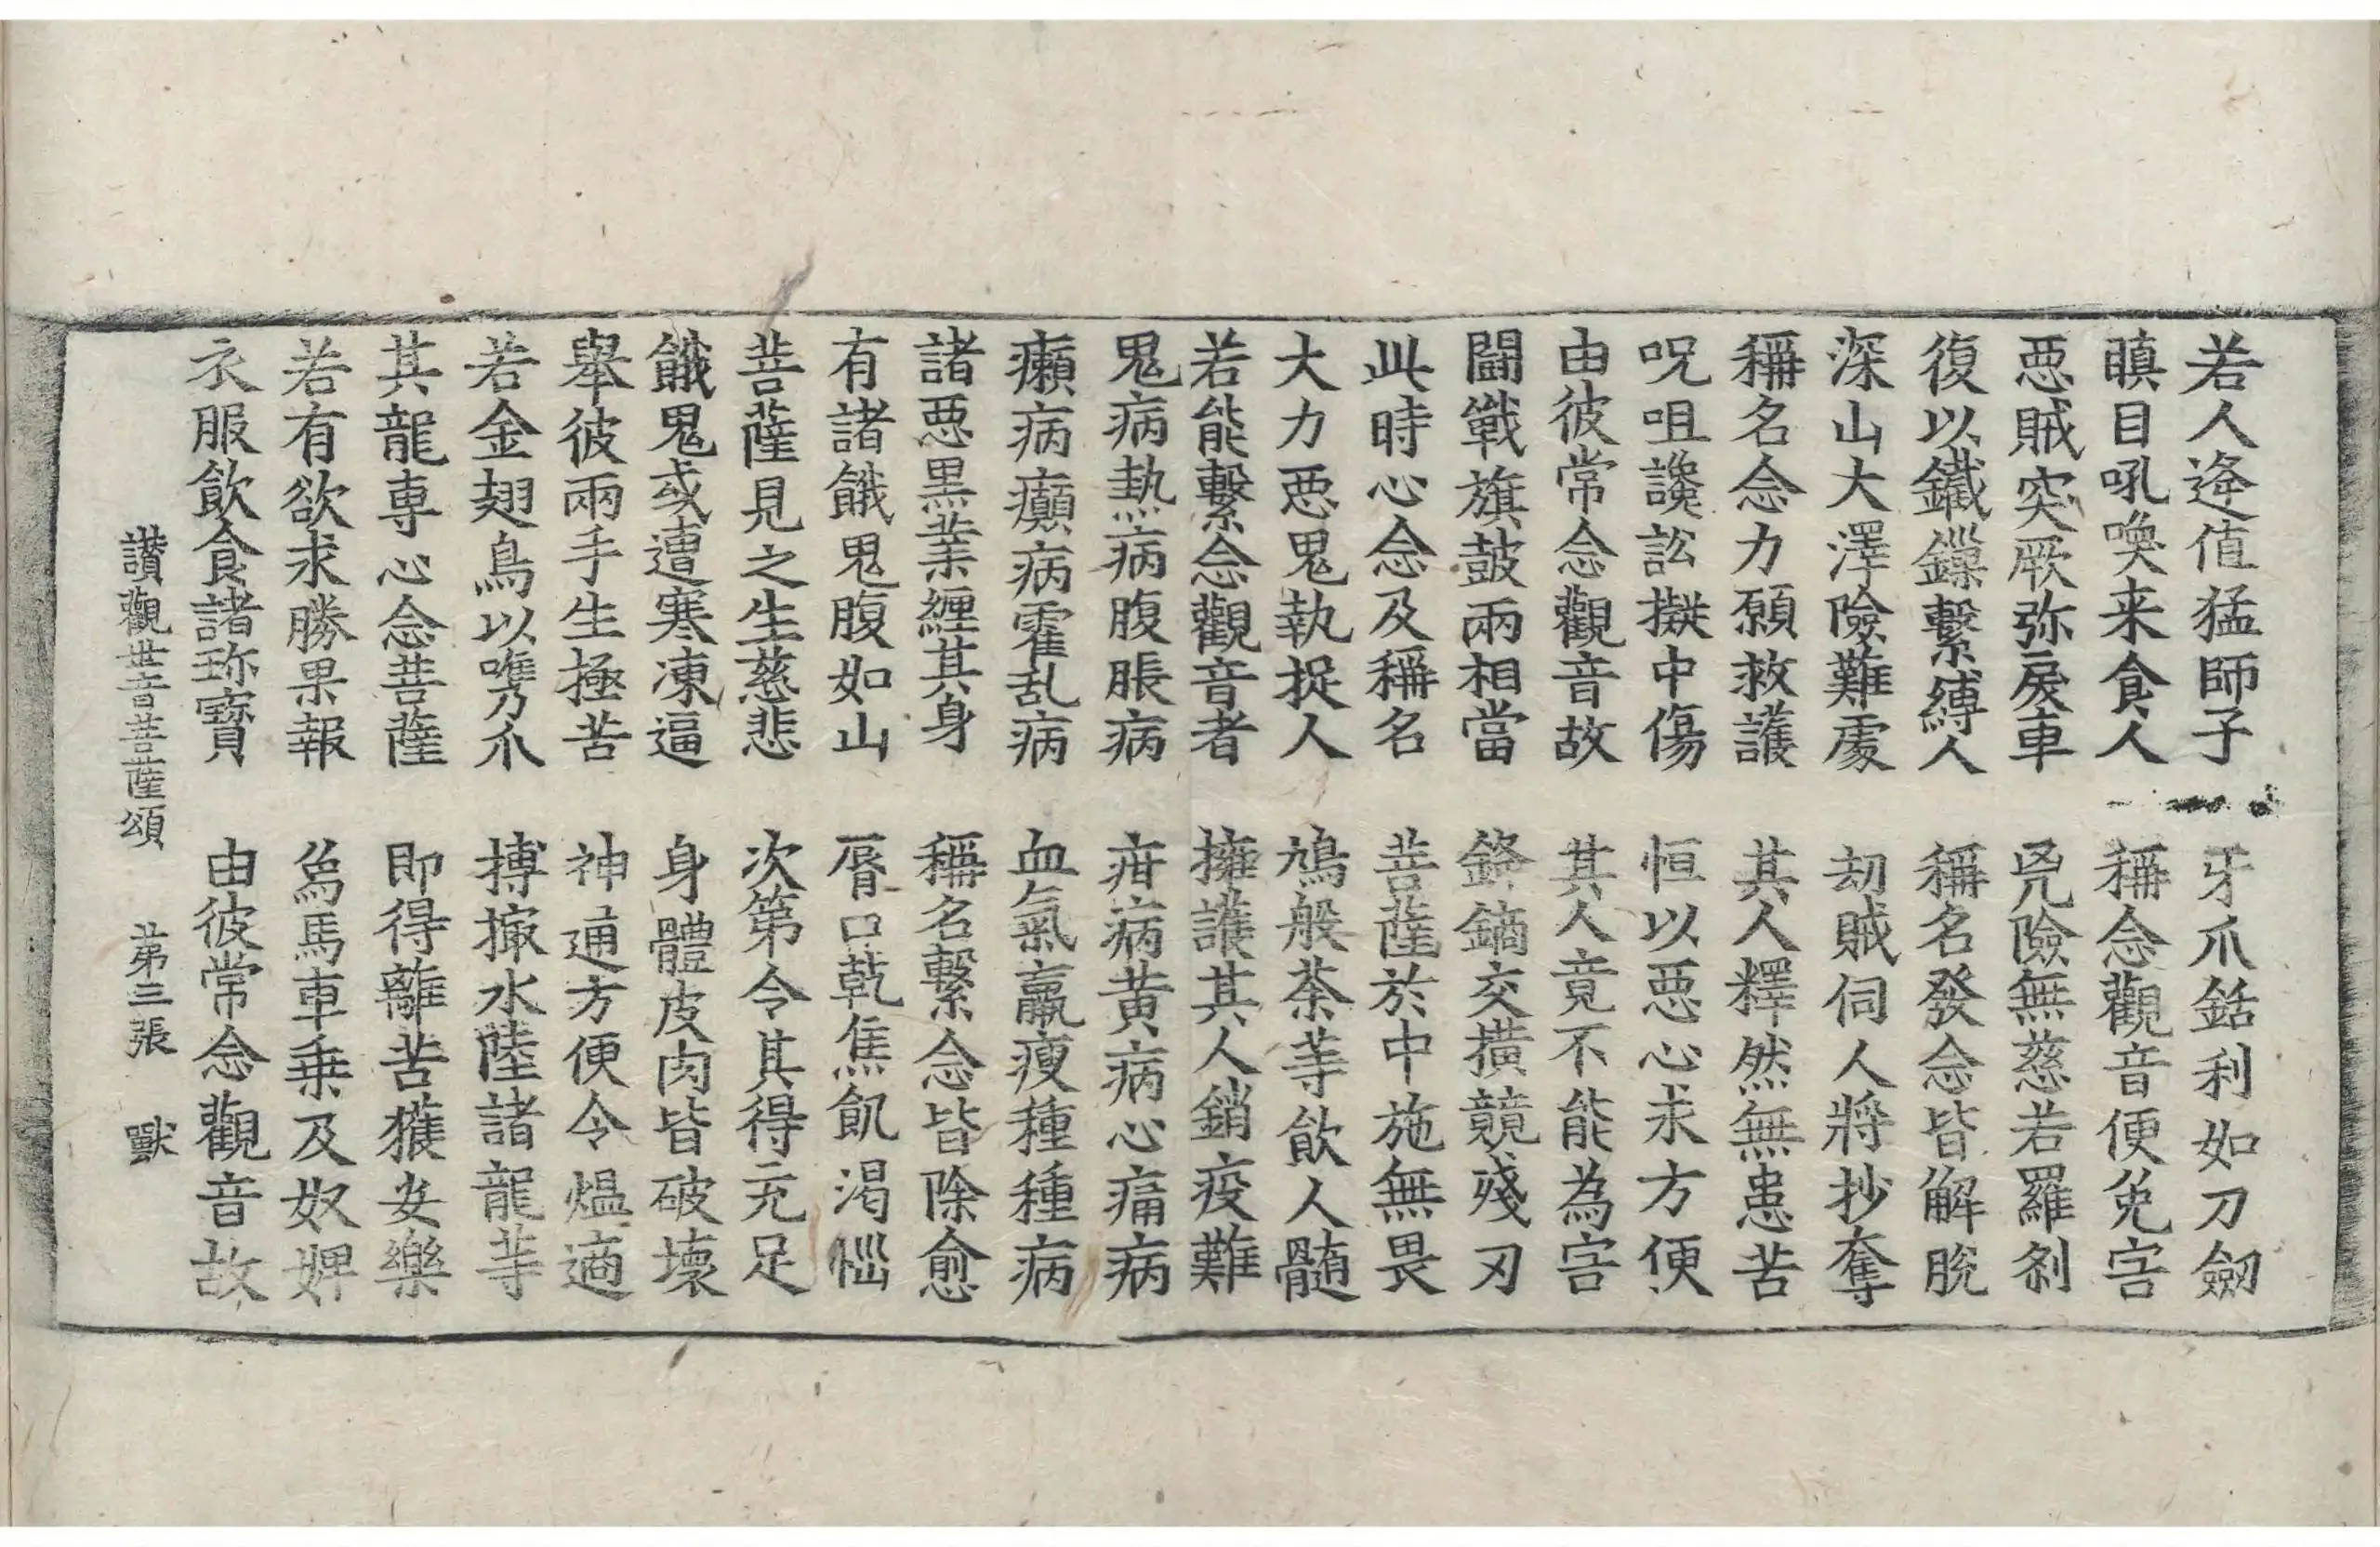 若人逄值猛師子　牙爪銛利如刀劒
瞋目吼喚来食人　稱念觀音便免害
惡賊突厥弥戾車　兇險無慈若羅剎
復以鐵鏁繫縛人　稱名發念皆解脫
深山大澤險難處　劫賊伺人將抄奪
稱名念力願救護　其人釋然無患苦
呪咀讒訟擬中傷　恒以惡心求方便
由彼常念觀音故　其人竟不能為害
鬪戰旗鼓兩相當　鋒鏑交撗競殘刃
此時心念及稱名　菩薩於中施無畏
大力惡鬼執捉人　鳩般荼等飲人髓
若能繫念觀音者　擁護其人銷疫難
鬼病熱病腹脹病　疳病黃病心痛病
癩病癲病霍乱病　血氣羸瘦種種病
諸惡黑業纒其身　稱名繫念皆除愈
有諸餓鬼腹如山　脣口乾焦飢渴惱
菩薩見之生慈悲　次第令其得充足
餓鬼或遭寒凍逼　身體皮肉皆破壞
舉彼兩手生極苦　神通方便令熅適
若金翅鳥以嘴爪　搏撮水陸諸龍等
其龍専心念菩薩　即得離苦獲安樂
若有欲求勝果報　爲馬車乗及奴婢
衣服飲食諸珎寶　由彼常念觀音故
讚觀世音菩薩頌　第三張　獸